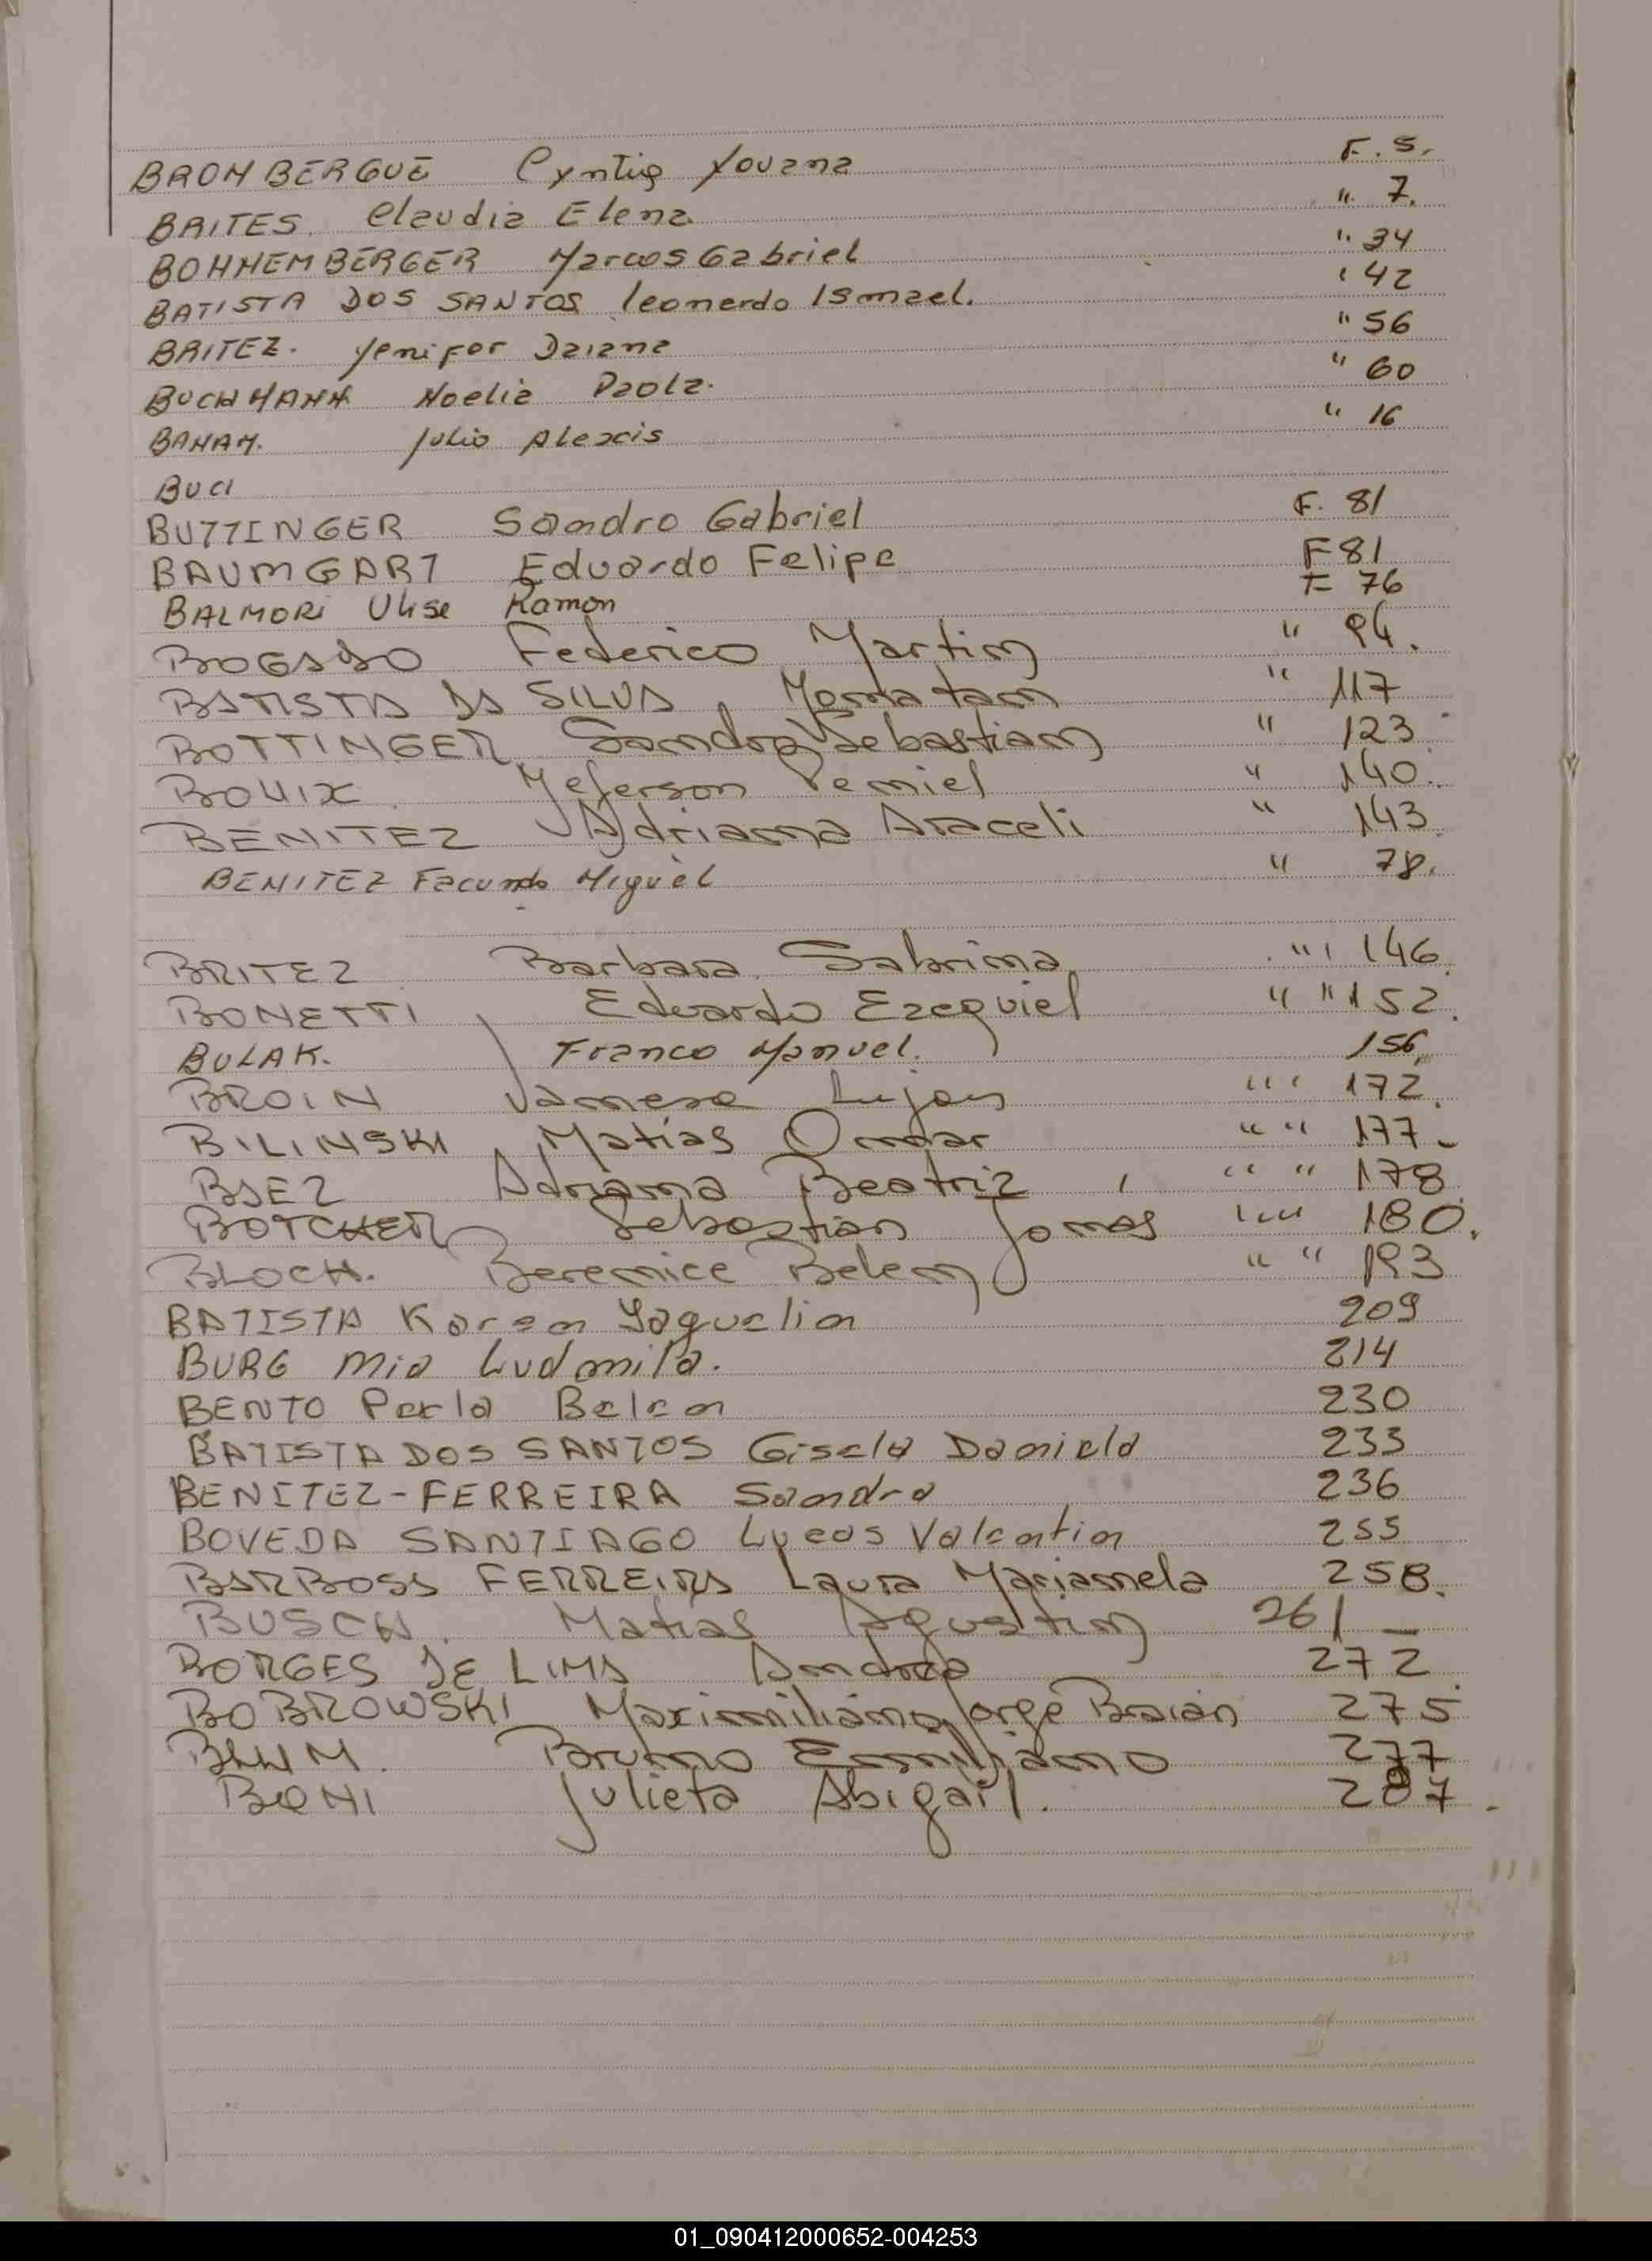 BROMBERGUE Cyntia Yovana F. 5.
BRITES. Claudia Elena " 7.
BOHNEMBERGER Marcos Gabriel " 34
BATISTA DOS SANTOS Leonardo Ismael. " 42
BRITEZ. Yenifer Daiana " 56
BUCHMANN Noelia Paola. " 60
BANAM. Julio Alexis " 16
BUCI
BUTTINGER Sandro Gabriel F. 81
BAUMGART Eduardo Felipe F 81
BALMORI Ulise Ramon F 76
BOGADO Federico Martin " 94.
BATISTA DA SILVA, Yonatan " 117
BOTTINGER Sandra Sebastian " 123
BOUIX. Yeferson Yemiel " 140.
BENITEZ Adriana Araceli " 143.
BENITEZ Facundo Miguel " 78.
BRITEZ Barbara Sabrina " 146.
BONETTI Eduardo Ezequiel " " 152.
BULAK. Franco Manuel. 156.
BROIN Vanesa Lujan " " 172.
BILINSKI Matías Omar " " 177.
BAEZ Adriana Beatriz " " 178.
BOTCHER Sebastián Jonas " " 180.
BLOCH. Berenice Belen " " 193
BATISTA Karen Yaquelin 209
BURG Mia Ludmila. 214
BENTO Perla Belen 230
BATISTA DOS SANTOS Gisela Daniela 233
BENITEZ-FERREIRA Sandra 236
BOVEDA SANTIAGO Lucas Valentin 255
BARBOSA FERREIRA Laura Marianela 258.
BUSCH. Matias Agustin 261
BORGES DE LIMA Andrea 272.
BOBROWSKI Maximiliano Jorge Braian 275
BLUM. Bruno Emiliano 277
BONI Julieta Abigail. 287.
01_090412000652-004253